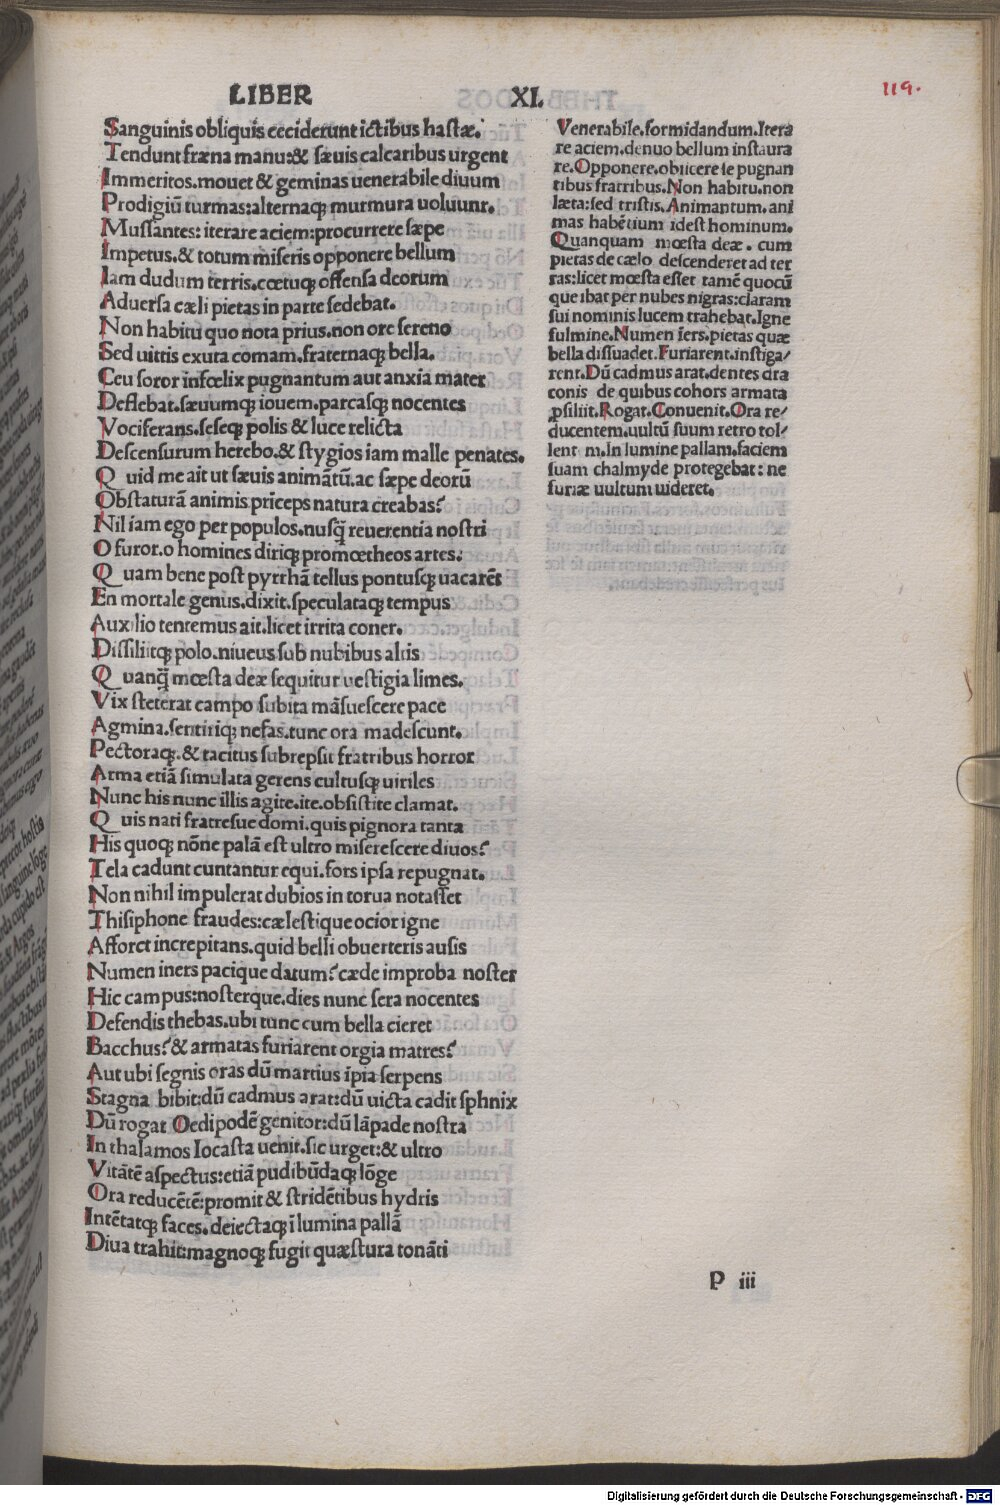 LIBER XI.
119.
Sanguinis obliquis ceciderunt ictibus hastæ.
Tendunt fræna manu:& sæuis calcaribus urgent
Immeritos.mouet & geminas uenerabile diuum
Prodigiũ turmas:alternaqꝫ murmura uoluunt.
Mussantes: iterare aciem:procurrere sæpe
Impetus.& totum miseris opponere bellum
Iam dudum terris.cœtuqꝫ offensa deorum
Aduersa cæli pietas in parte sedebat.
Non habitu quo nota prius.non ore sereno
Sed uittis exuta comam.fraternaqꝫ bella.
Ceu soror infœlix pugnantum aut anxia mater
Deflebat.sæuumqꝫ iouem.parcasqꝫ nocentes
Vociferans.seseqꝫ polis & luce relicta
Descensurum herebo.& stygios iam malle penates.
Quid me ait ut sæuis animãtũ.ac sæpe deorũ
Obstaturã animis prĩceps natura creabas?
Nil iam ego per populos.nusq̃ reuerentia nostri
O furor.o homines diriqꝫ promœtheos artes.
Quam bene post pyrrhã tellus pontusqꝫ uacarẽt
En mortale genus.dixit.speculataqꝫ tempus
Auxilio tentemus ait.licet irrita coner.
Dissiliitqꝫ polo.niueus sub nubibus altis
Quanq̃ mœsta deæ sequitur uestigia limes.
Vix steterat campo subita mãsuescere pace
Agmina.sentiriqꝫ nefas.tunc ora madescunt.
Pectoraqꝫ.& tacitus subrepsit fratribus horror
Arma etiã simulata gerens cultusqꝫ uiriles
Nunc his nunc illis agite.ite.obsistite clamat.
Quis nati fratresue domi.quis pignora tanta
His quoqꝫ nõne palã est ultro miserescere diuos?
Tela cadunt cunctantur equi.fors ipsa repugnat.
Non nihil impulerat dubios in torua notasset
Thisiphone fraudes:cælestique ocior igne
Afforet increpitans.quid belli obuerteris ausis
Numen iners pacique datum?cæde improba noster
Hic campus:nosterque.dies nunc sera nocentes
Defendis thebas.ubi tunc cum bella cieret
Bacchus?& armatas furiarent orgia matres?
Aut ubi segnis oras dũ martius ĩpia serpens
Stagna bibit:dũ cadmus arat:dũ uicta cadit sphnix
Dũ rogat Oedipodẽ genitor:dũ lãpade nostra
In thalamos Iocasta uenit.sic urget:& ultro
Vitãtẽ aspectus:etiã pudibũdaqꝫ lõge
Ora reducẽtẽ:promit & stridẽtibus hydris
Intẽtatqꝫ faces.deiectaqꝫ ĩ lumina pallã
Diua trahit:magnoqꝫ fugit quæstura tonãti
Venerabile.formidandum.Itera
re aciem.denuo bellum instaura
re.Opponere.obiicere se pugnan
tibus fratribus.Non habitu.non
læta:sed tristis.Animantum.ani
mas habẽtium idest hominum.
Quanquam mœsta deæ. cum
pietas de cælo descenderet ad ter
ras:licet mœsta esset tamẽ quocũ
que ibat per nubes nigras:claram
sui nominis lucem trahebat.Igne
fulmine.Numen ĩers.pietas quæ
bella dissuadet.Furiarent.instiga/
rent.Dũ cadmus arat.dentes dra
conis de quibus cohors armata
ꝓsiliit.Rogat.Conuenit.Ora re/
ducentem.uultũ suum retro tol/
lent m.In lumine pallam.faciem
suam chalmyde protegebat: ne
furiæ uultum uideret.
P iii
Digitalisierung gefördert durch die Deutsche Forschungsgemeinschaft - DFG